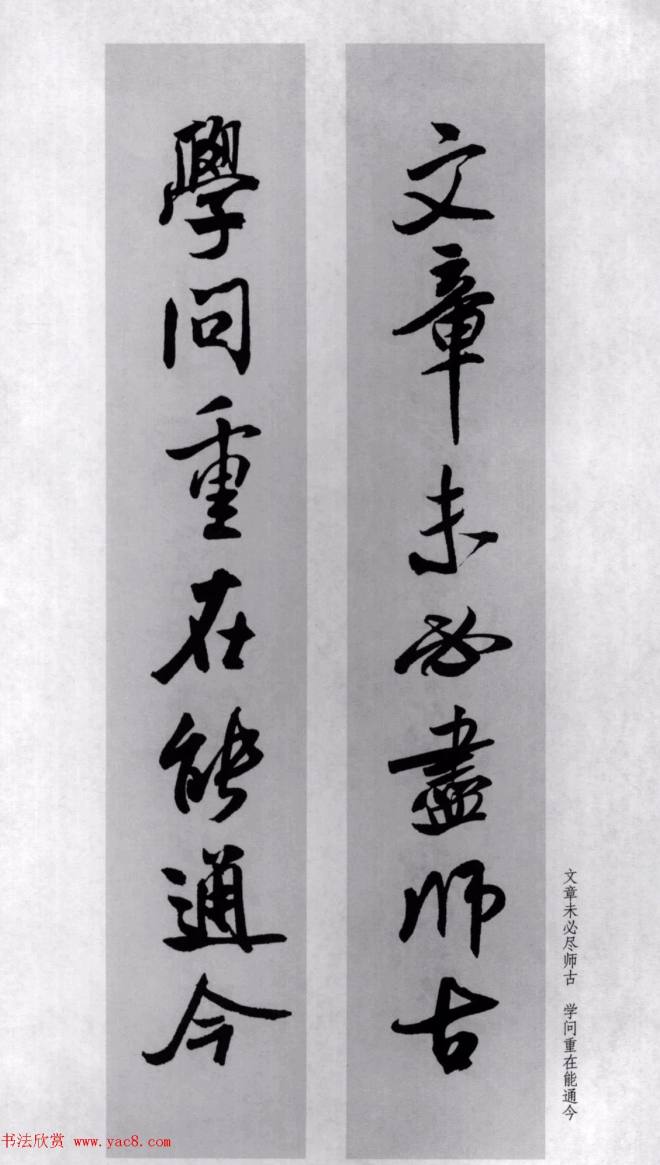 文章未必盡师古
學问重在能通今
文章未必尽师古　学问重在能通今
书法欣赏 www.yac8.com